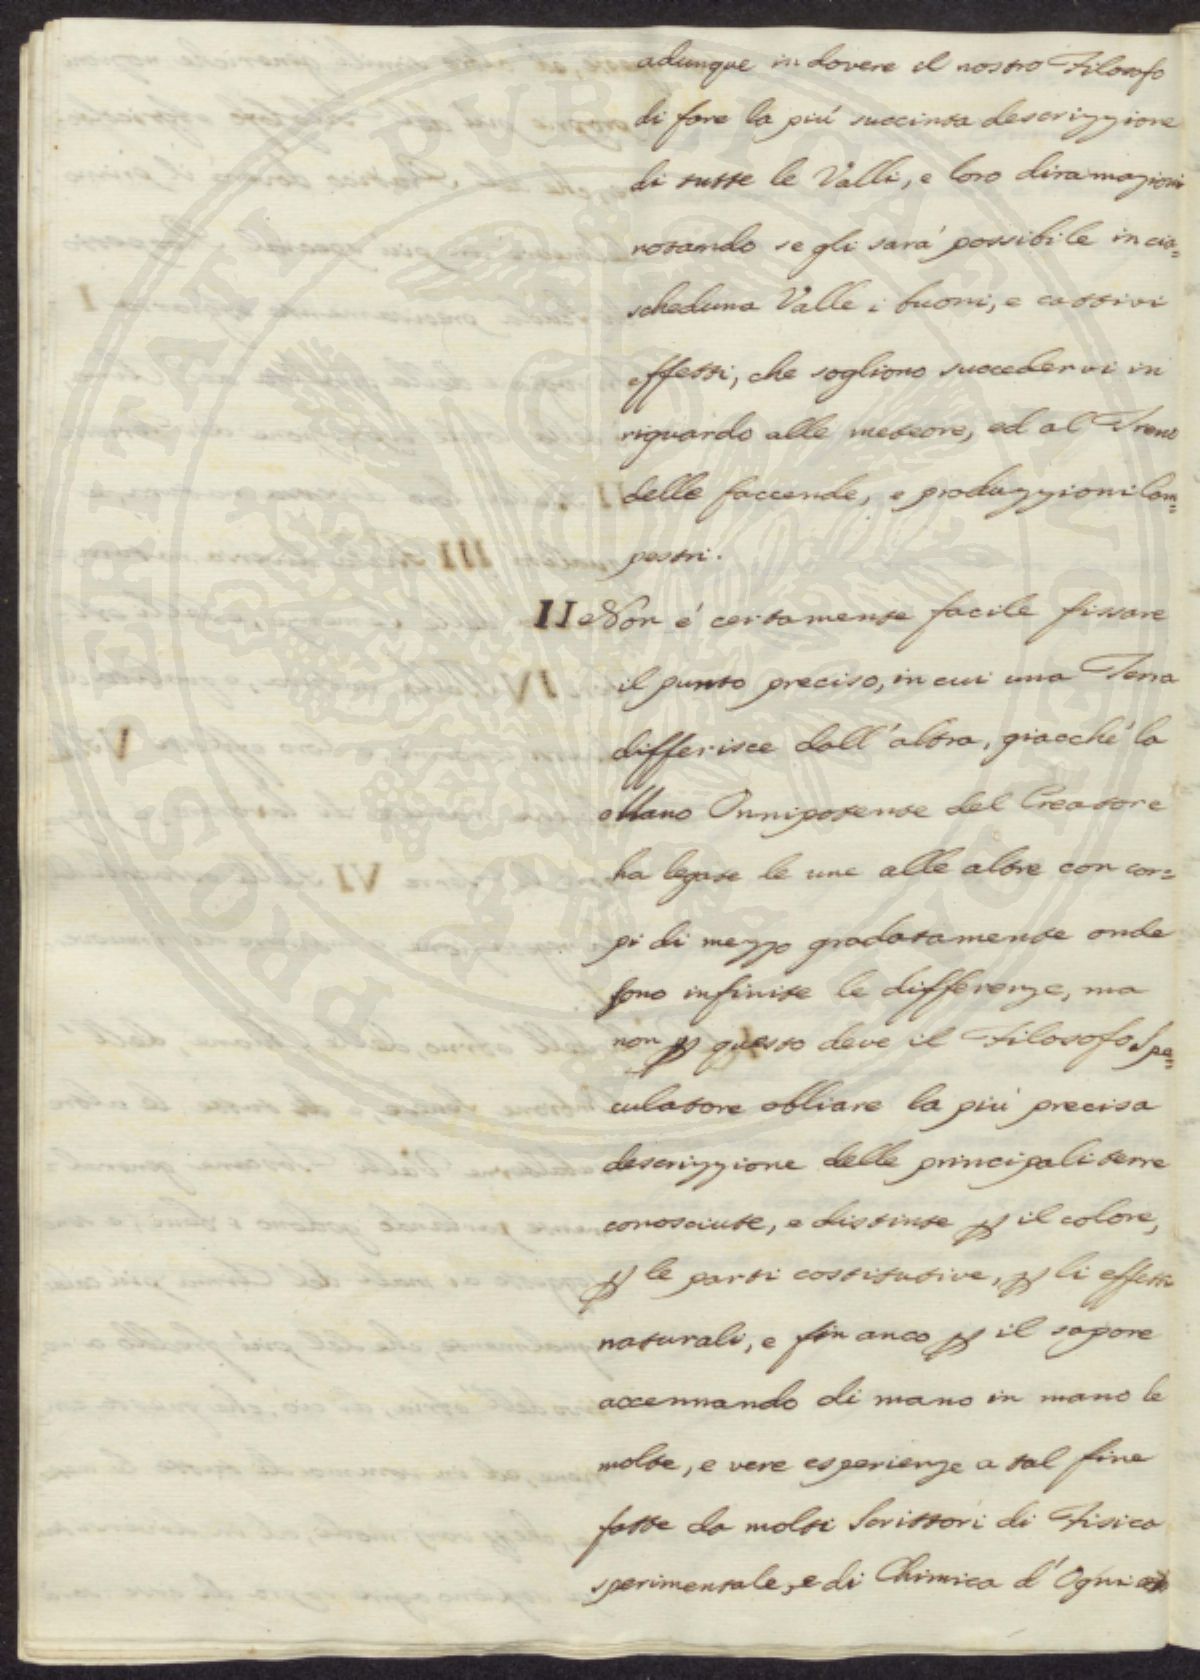 adunque in dovere il nostro Filosofo
di fare la piú succinta descrizzione
di tutte le Valli, e loro diramazioni
notando se gli sará possibile in cia=
scheduna Valle i buoni, e cattivi
effetti, che sogliono succedervi in
riguardo alle meteore, ed al Treno
delle faccende, e produzzioni Cam=
pestri.
II Non é certamente facile fissare
il punto preciso, in cui una Terra
differisce dall'altra, giacché la
Mano Onnipotente del Creatore
ha legate le une alle altre con cor=
pi di mezzo gradatamente onde
sono infinite le differenze, ma
non ꝑ questo deve il Filosofo Spe=
culatore obliare la piú precisa
descrizzione delle principali terre
conosciute, e distinte ꝑ il colore,
ꝑ le parti costitutive, ꝑ li effetti
naturali, e fin anco ꝑ il sapore
accennando di mano in mano le
molte, e vere esperienze a tal fine
fatte da molti Scrittori di Fisica
sperimentale, e di Chimica d'Ogni
PROSPERITATI PUBLICAE AUGENDAE